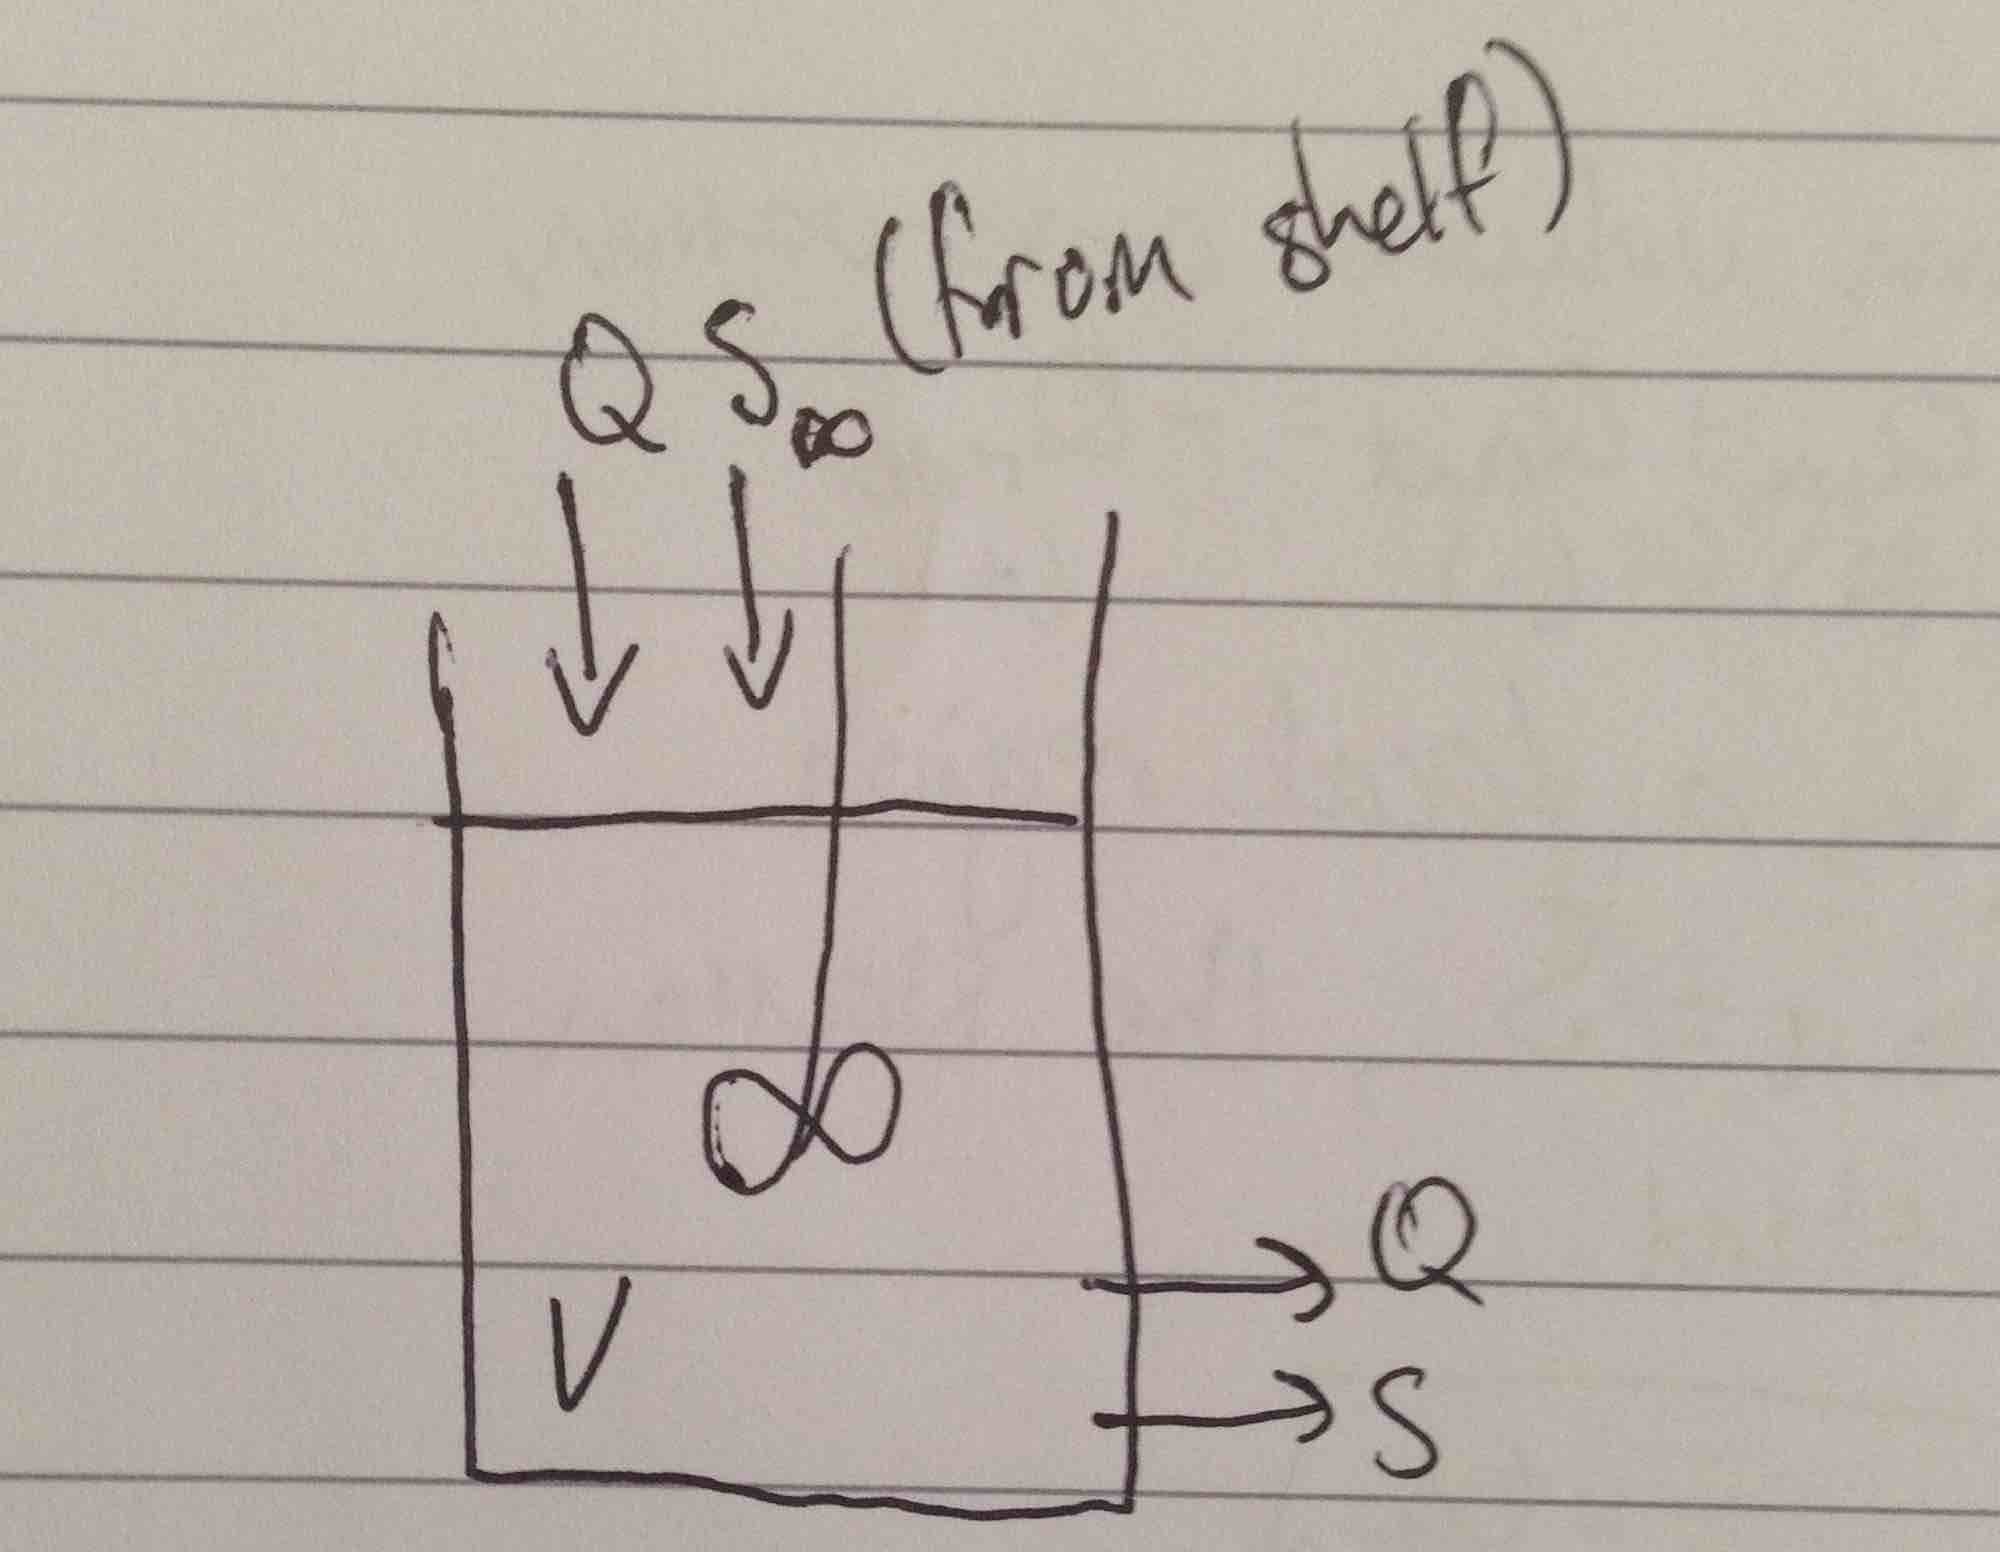 Q S∞ (from shelf)
V
Q
S